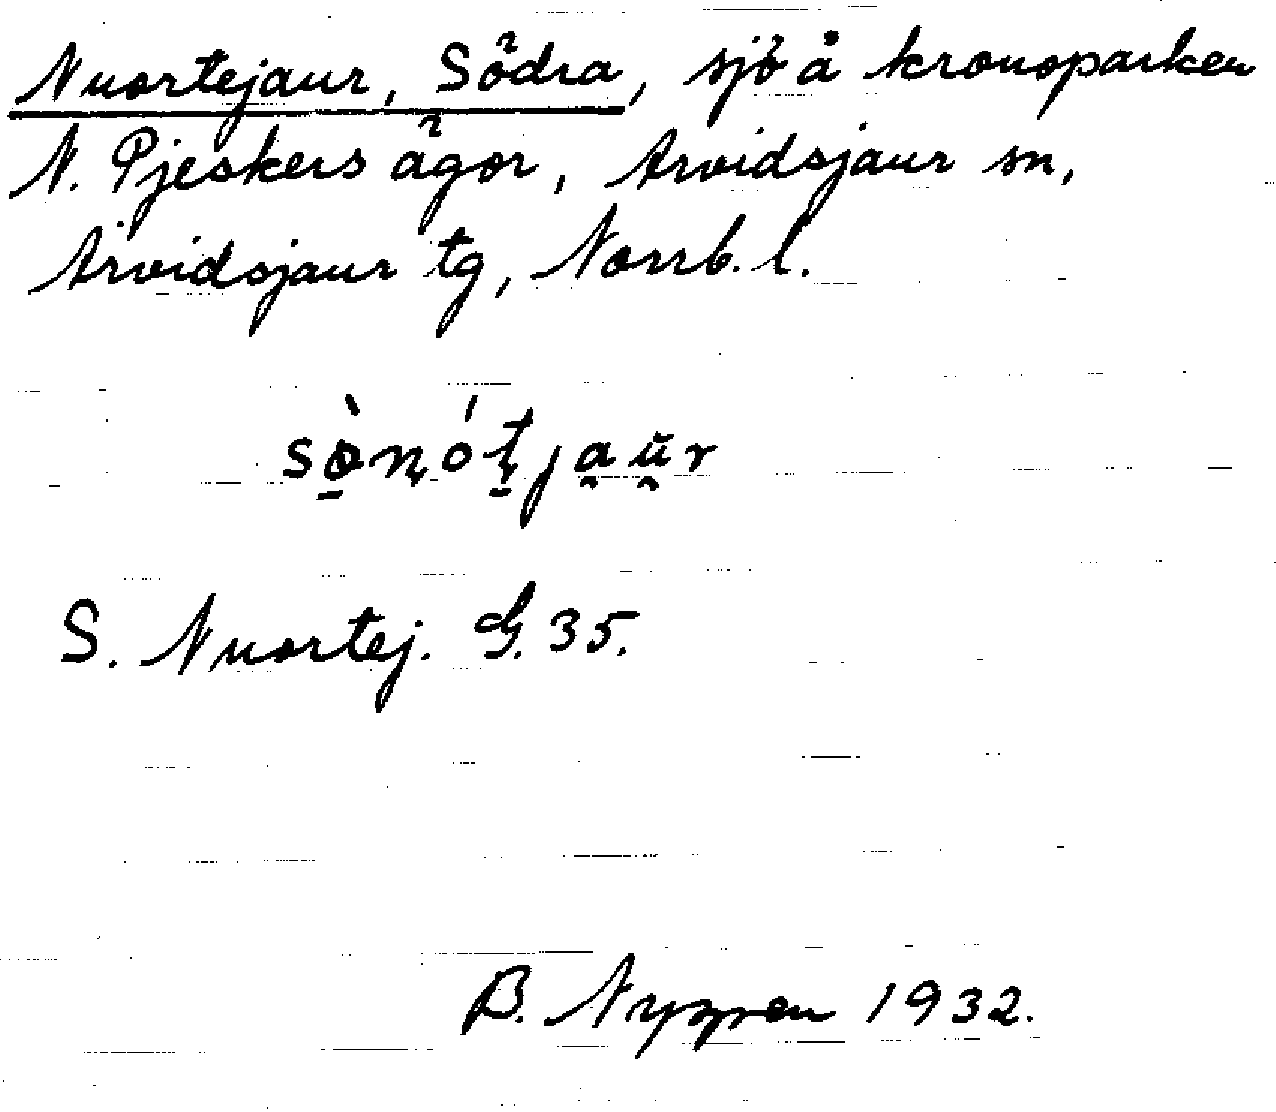 Nuortejaur, Södra, sjö å kronoparken
N. Pjeskers ägor, Arvidsjaur sn,
Arvidsjaur tg, Norrb. l.
sò̠n̨ót̠ja̯ŭ̯r
S. Nuortej. G. 35.
B. 1932.